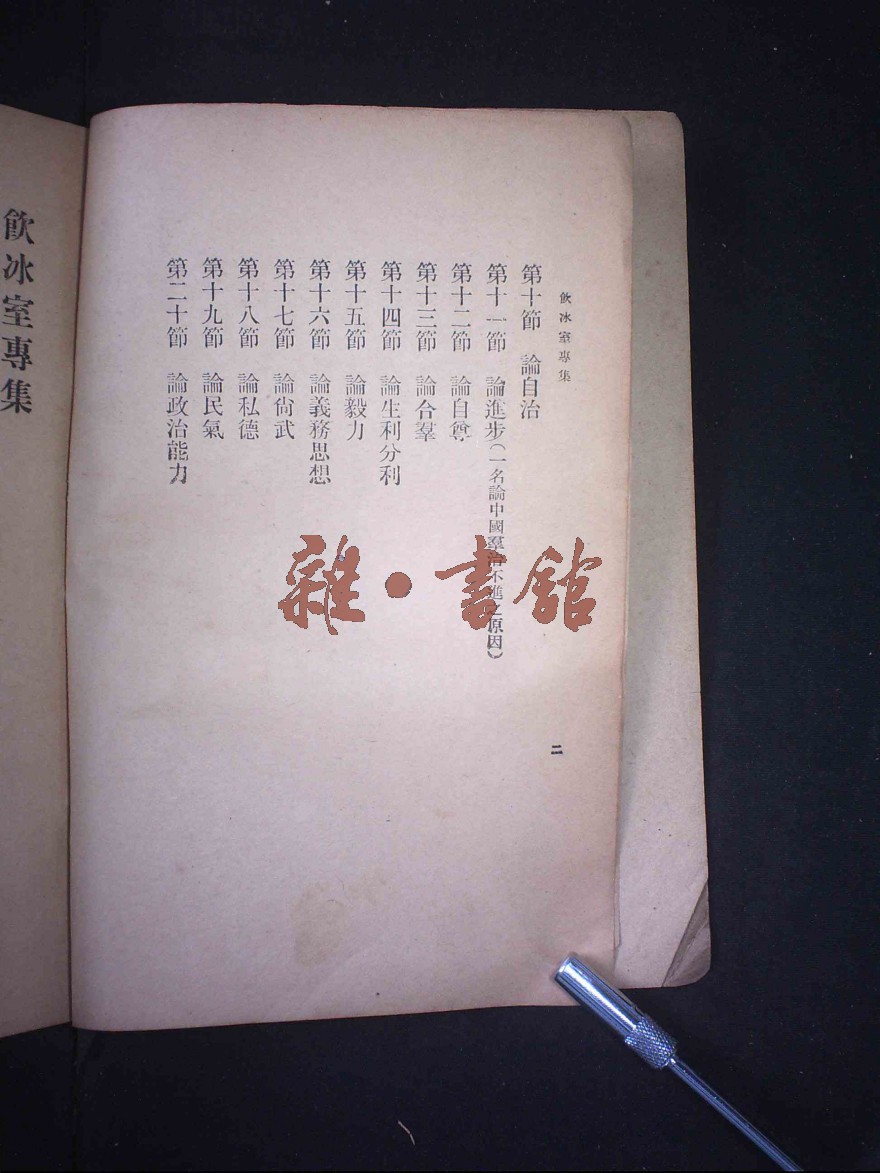 飲冰室專集
第十節 論自治
第十一節 論進步(一名論中國羣治不進之原因)
第十二節 論自尊
第十三節 論合羣
第十四節 論生利分利
第十五節 論毅力
第十六節 論義務思想
第十七節 論尙武
第十八節 論私德
第十九節 論民氣
第二十節 論政治能力
二
飮冰室專集
雜·書館